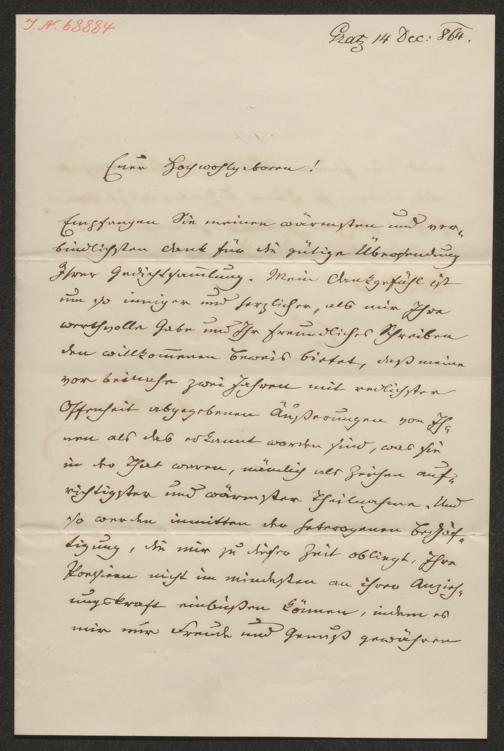 J. N. 68884
Gratz 14 Dec: 864.
Euer Hochwohlgeboren!
Empfangen Sie meinen wärmsten und ver-
bindlichsten Dank für die gütige Übersendung
Ihrer Gedichtsammlung. Mein Dankgefühl ist
um so inniger und herzlicher, als mir Ihre
werthvolle Gabe und Ihr freundliches Schreiben
den willkommenen Beweis bietet, daß meine
vor beinahe zwei Jahren mit redlichster
Offenheit abgegebenen Äußerungen von Ih-
nen als das erkannt worden sind, was sie
in der That waren, nämlich als Zeichen auf-
richtigster und wärmster Theilnahme. Und
so werden inmitten der heterogenen Beschäf-
tigung, die mir zu dieser Zeit obliegt, Ihre
Poesieen nicht im mindesten an ihrer Anzieh-
ungskraft einbüßen können, indem es
mir nur Freude und Genuß gewähren